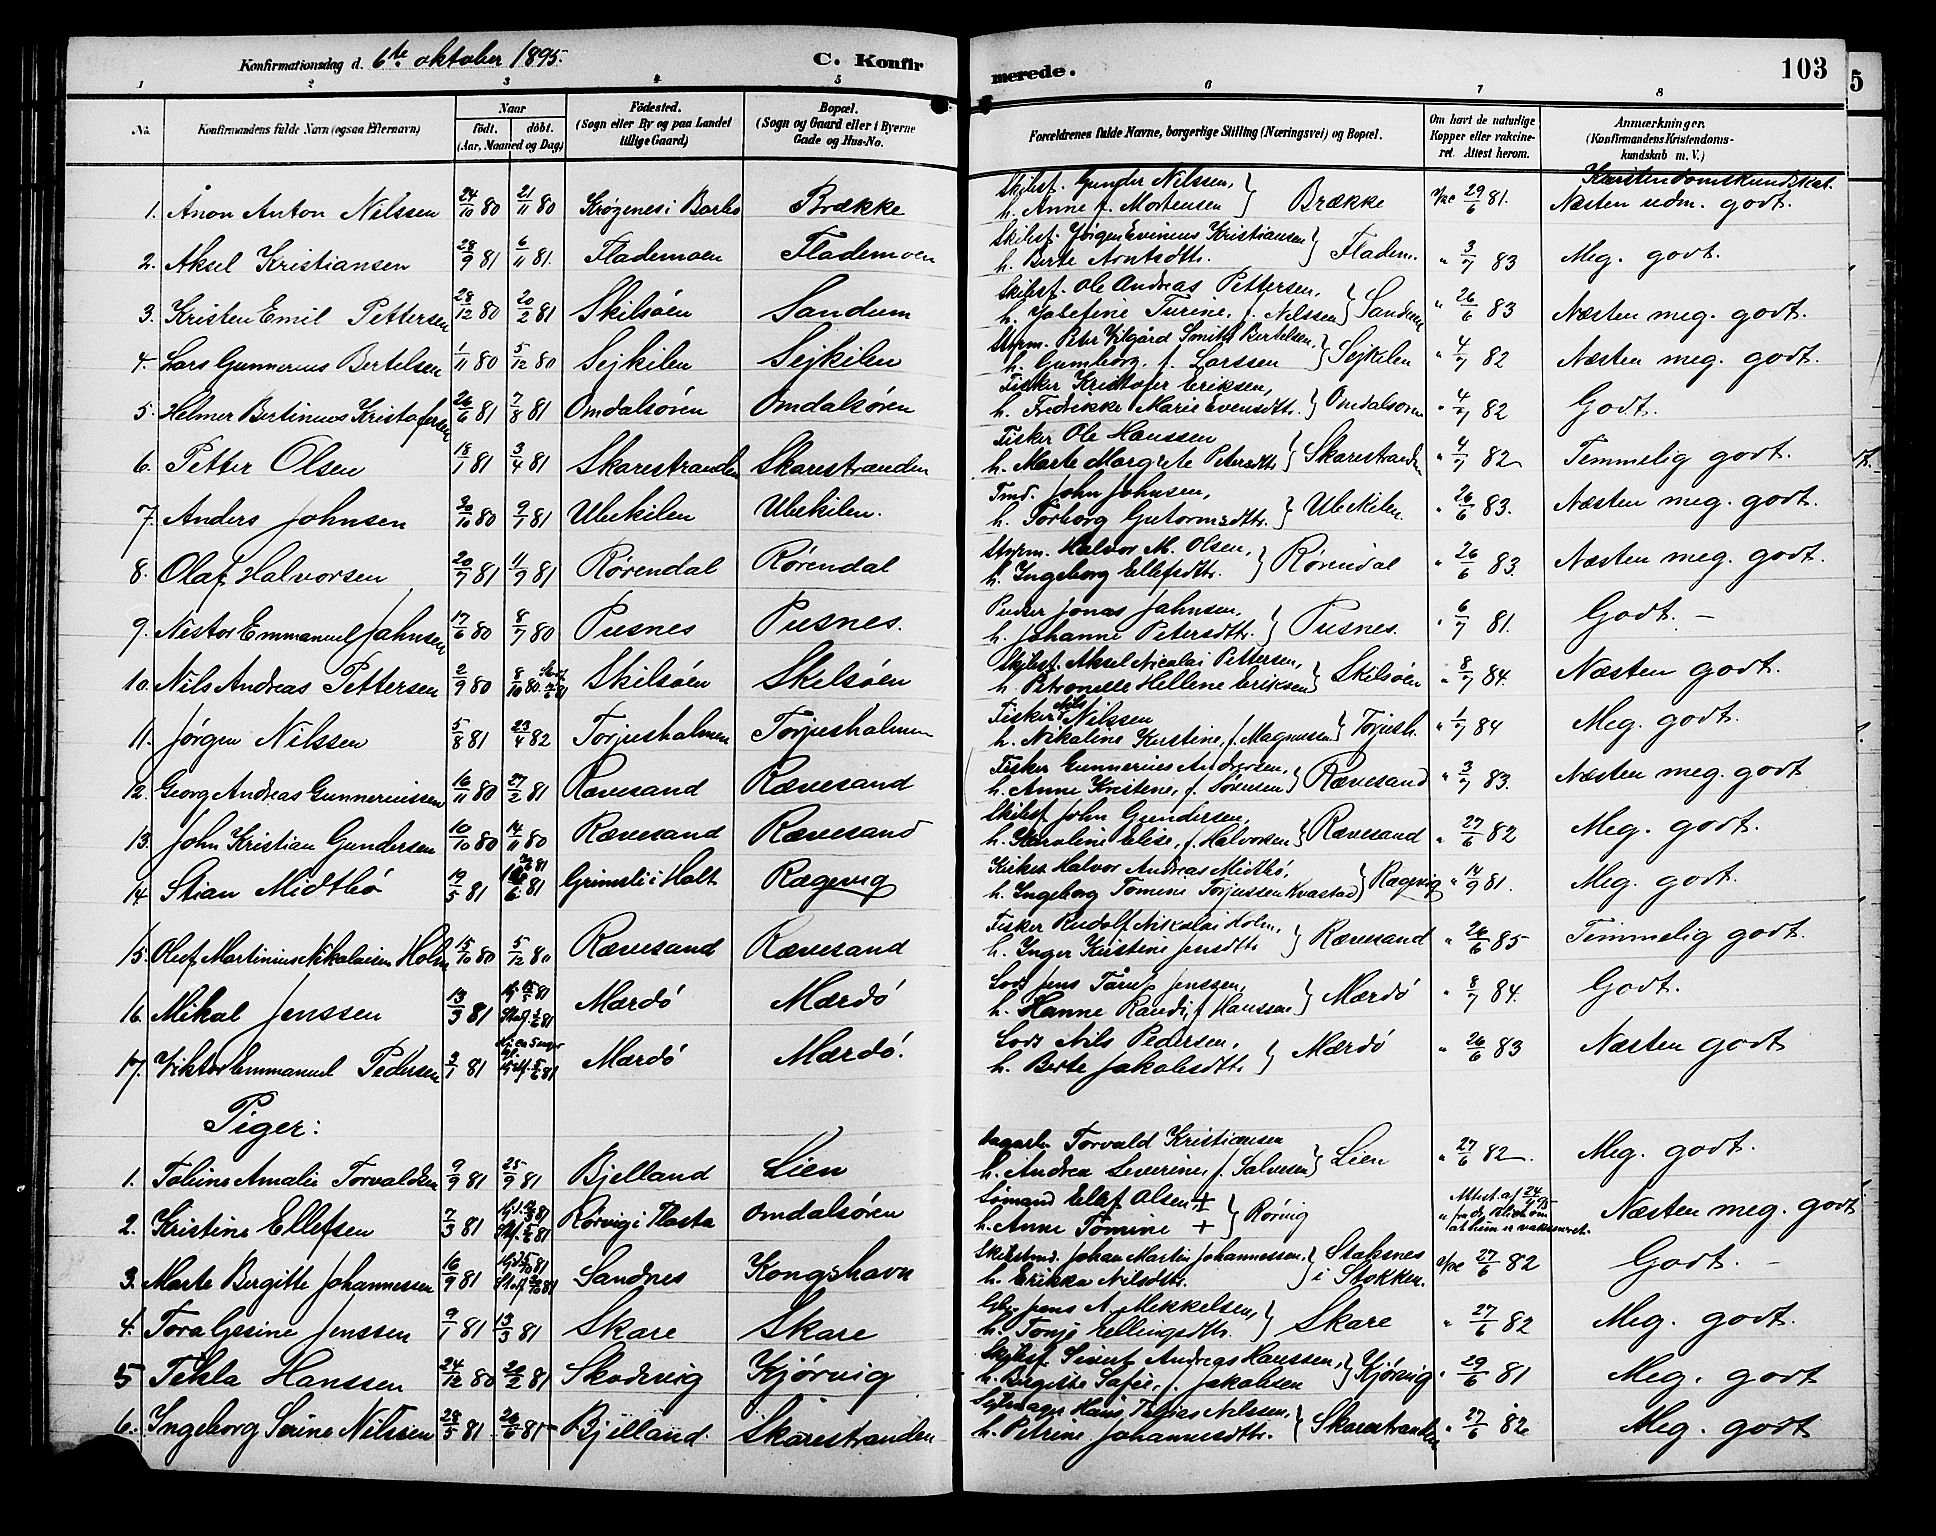 Konfirmationsdag d. 6te oktober 1895. C. Konfirmerede. 103
1 2 3 4 5 6 7 8
No. Konfirmandens fulde Navn (ogsaa Efternavn) Naar født. døbt. (Aar, Maaned og Dag) Fødested. (Sogn eller By og paa Landet tillige Gaard) Bopæl. (Sogn og Gaard eller i Byerne Gade og Hus-No. Forældrenes fulde Navne, borgerlige Stilling (Næringsvei) og Bopæl. Om havt de naturlige Kopper eller vakcineret. Attest herom. Anmærkninger. (Konfirmandens Kristendomskundskab m. V.)
Kristendomskundskab.
1. Anon Anton Nilssen 24/10 80 21/11 80 Krøgenes i Barbo Brække Skibsf. Gunder Nilssen, h. Anne f. Mortensen } Brække vac 29/6 81. Næsten udm. godt.
2. Aksel Kristiansen 28/9 81 6/11 81. Flademoen Flademoen Skibsf. Jørgen Evinius Kristiansen h. Berte Arntsdtr. } Fladem. " 3/7 83 Meg. godt.
3. Kristen Emil Pettersen 28/12 80 20/2 81 Skilsøen Sandum Skibsf. Ole Andreas Pettersen, h. Josefine Turine, f. Nilssen } Sandum " 26/6 83 Næsten meg. godt.
4. Lars Gunnerius Bertelsen 1/11 80 5/12 80 Sejkilen Sejkilen Styrm. Peter Kilgård Smith Bertelsen, h. Gumborg, f. Larssen } Sejkilen " 4/7 82 Næsten meg. godt.
5. Helmer Bertinius Kristofersen 26/6 81 7/8 81 Omdalsøren Omdalsøren Fisker Kristofer Eriksen, h. Fredrikke Marie Evensdtr. } Omdalsøren " 4/7 82 Godt.
6. Petter Olsen 18/1 81 3/4 81 Skarestranden Skarestranden Fisker Ole Hanssen h. Marte Margrete Petersdtr. } Skarestranden " 4/7 82 Temmelig godt.
7. Anders Johnsen 30/10 80 9/1 81 Ubekilen Ubekilen. Tmd. John Johnsen, h. Torborg Gutormsdtr. } Ubekilen. " 26/6 83. Næsten meg. godt.
8. Olaf Halvorsen 20/7 81 11/9 81 Rørendal Rørendal Styrm. Halvor M. Olsen, h. Ingeborg Ellefsdtr. } Rørendal " 26/6 83. Næsten meg. godt.
9. Nestor Emmanuel Jahnsen 17/6 80 8/7 80 Pusnes Pusnes. Jonas Jahnsen, h. Johanne Petersdtr. } Pusnes. " 6/7 81. Godt. –
10. Nils Andreas Pettersen 2/9 80 8/10 80. Skilsøen Skilsøen Skibsf. Aksel Nicolai Pettersen, h. Petronelle Hellene Eriksen } Skilsøen " 8/7 84. Næsten godt.
11. Jørgen Nilssen 5/8 81 23/4 82 Torjusholmen Torjusholmen Fisker Nils Nilssen h. Nikaline Kirstine, f. Magnussen } Torjush. " 1/7 84 Meg. godt.
12. Georg Andreas Gunneriussen 16/11 80 27/2 81 Rævesand Rævesand Fisker Gunnerius Andersen, h. Anne Kristine, f. Sørensen } Rævesand " 3/7 83. Næsten meg. godt
13. John Kristian Gundersen 10/10 80 14/11 80 Rævesand Rævesand Skibsf. John Gundersen, h. Karoline Elise, f. Halvorsen } Rævesand " 27/6 82 Meg. godt.
14 Stian Midtbø 19/5 81 6. 81 Grimsli i Holt Rægevig Halvor Andreas Midtbø, h. Ingeborg Tomine Torjussen Kvastad } Rægevig " 14/9 81. Meg. godt.
15. Oluf Martinius Nikolaisen Holm 15/10 80 5/12 80 Rævesand Rævesand Fisker Rudolf Nikolai Holm, h. Inger Kristene Jensdtr } Rævesand " 26/6 85 Temmelig godt.
16. Mikal Jenssen 13/3 81 Mærdø Mærdø Lods Jens Tårup Jenssen, h. Hanne Randi, f. Hanssen } Mærdø " 8/7 84. Godt.
17. Viktor Emmanuel Pedersen 3/1 81 Mærdø Mærdø. Lods Nils Pedersen, h. Berte Jakobsdtr. } Mærdø " 26/6 83 Næsten godt
Piger:
1. Toline Amalie Torvaldsen 9/9 81 25/9 81 Bjelland Lien Dagarb. Torvald Kristiansen h. Andrea Severine, f. Salvesen } Lien " 27/6 82. Meg. godt.
2. Kristine Ellefsen 7/3 81 Rørvig i Flosta Omdalsøren Sømand Ellef Olsen + h. Anne Tomine + } Rørvig Attest af 24/4 95 fra dr. at hun er vakcineret. Næsten meg. godt
3. Marte Bergitte Johannessen 16/9 81 Sandnes Kongshavn Skibstmd. Johan Martin Johannessen, h. Erikka Nilsdtr. } Staksnes i Stokken. vac 27/6 82 Godt. –
4. Tora Gesine Jenssen 9/1 81 13/3 81 Skare Skare Jens A. Mikkelsen, h. Tonje Ellingsdtr. } Skare " 27/6 82 Meg. godt.
5 Tekla Hanssen 24/12 80 20/2 81 Skudevig Kjørvig Skibsf. Sivert Andreas Hanssen, h. Birgitte Sofie, f. Jakobsen } Kjørvig " 29/6 81 Meg. godt
6. Ingeborg Serine Nilssen 28/5 81 26/6 81 Bjelland Skarestranden Hans Tobias Nilssen, h. Petrine Johannesdtr. } Skarestranden " 27/6 82 Meg. godt